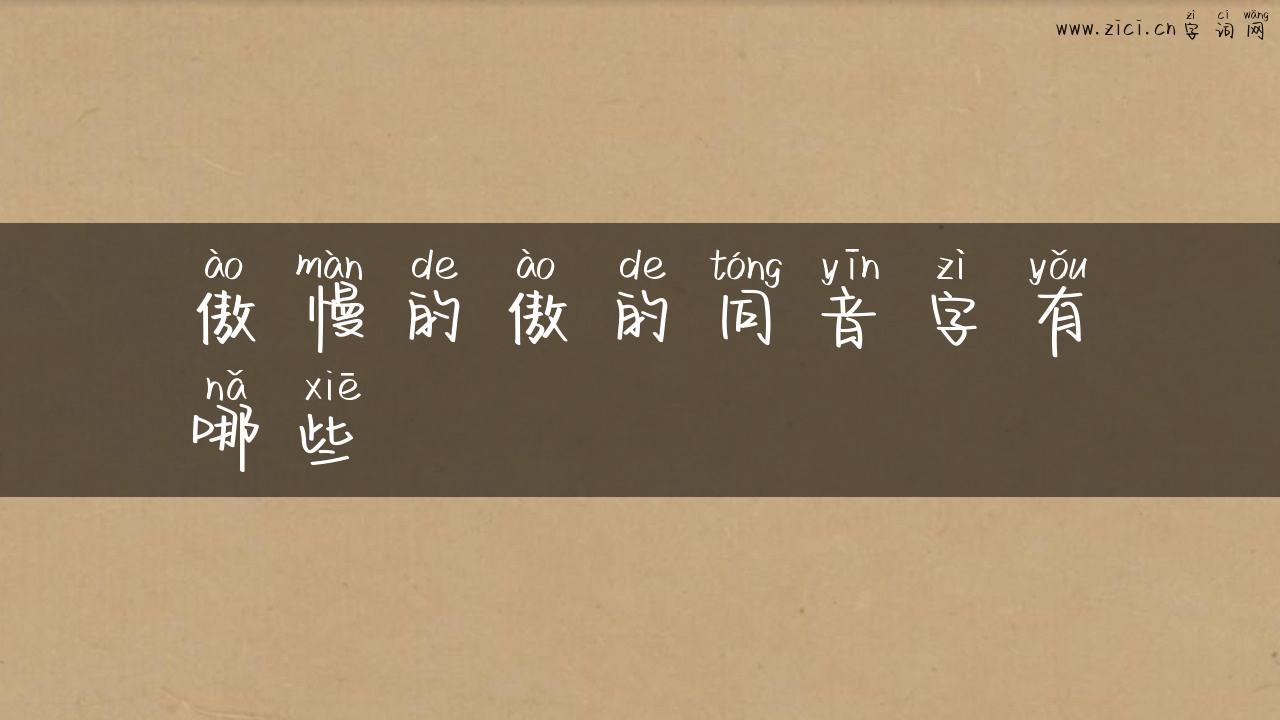 zì cí wǎng
www.zici.cn 字词网
ào màn de ào de tóng yīn zì yǒu
傲慢的傲的同音字有
nǎ xiē
哪些